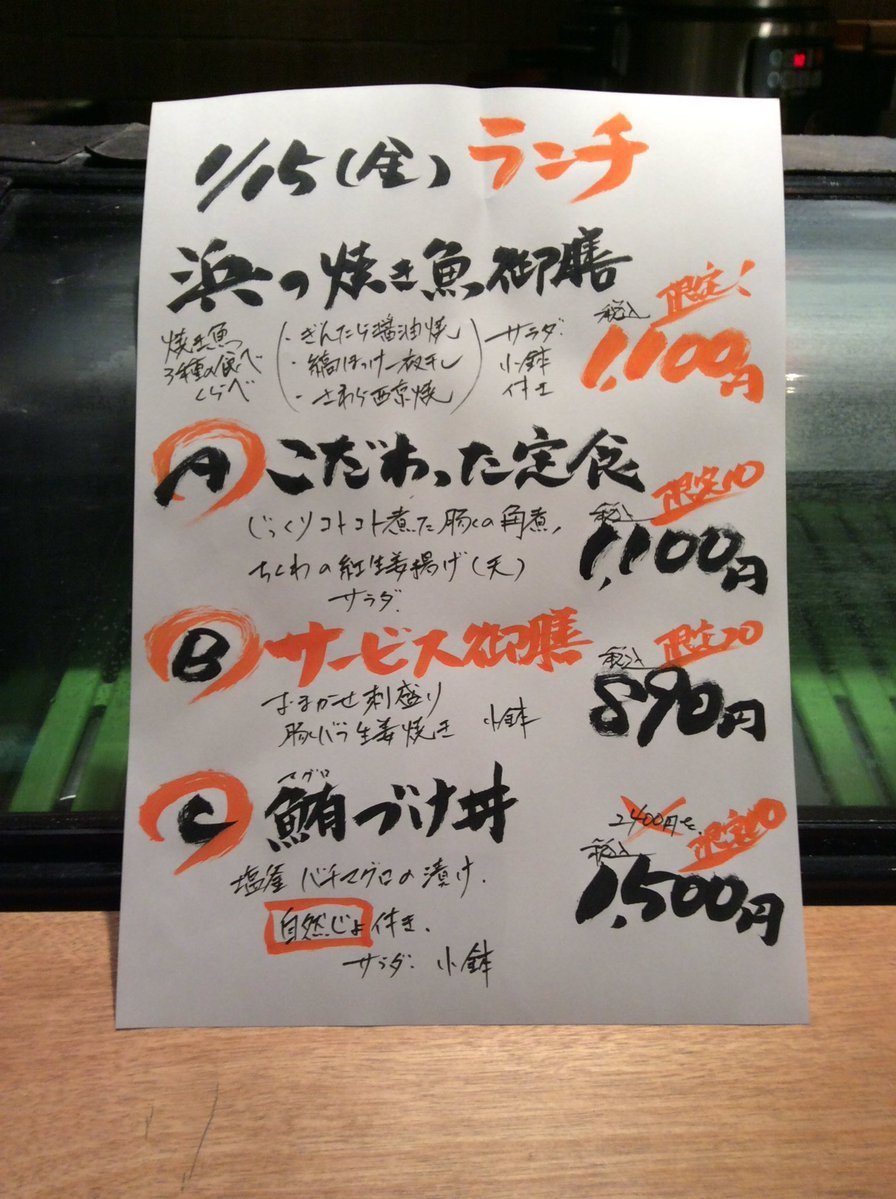 1/15(金)ランチ
浜の焼き魚御膳
焼き魚
3種の食べ
くらべ
・ぎんだら醤油焼
・縞ほっけ一夜干し
・さわら西京焼
サラダ
小鉢
付き
限定!
税込
1,100円
A こだわった定食
じっくりコトコト煮た豚の角煮、
ちくわの紅生姜揚げ(天)
サラダ
限定10
税込
1,100円
B サービス御膳
おまかせ刺盛り
豚バラ生姜焼き 小鉢
限定20
税込
890円
マグロ
C 鮪づけ丼
塩釜 バチマグロの漬け.
自然じょ付き.
サラダ 小鉢
2400円を
限定10
税込
1,500円